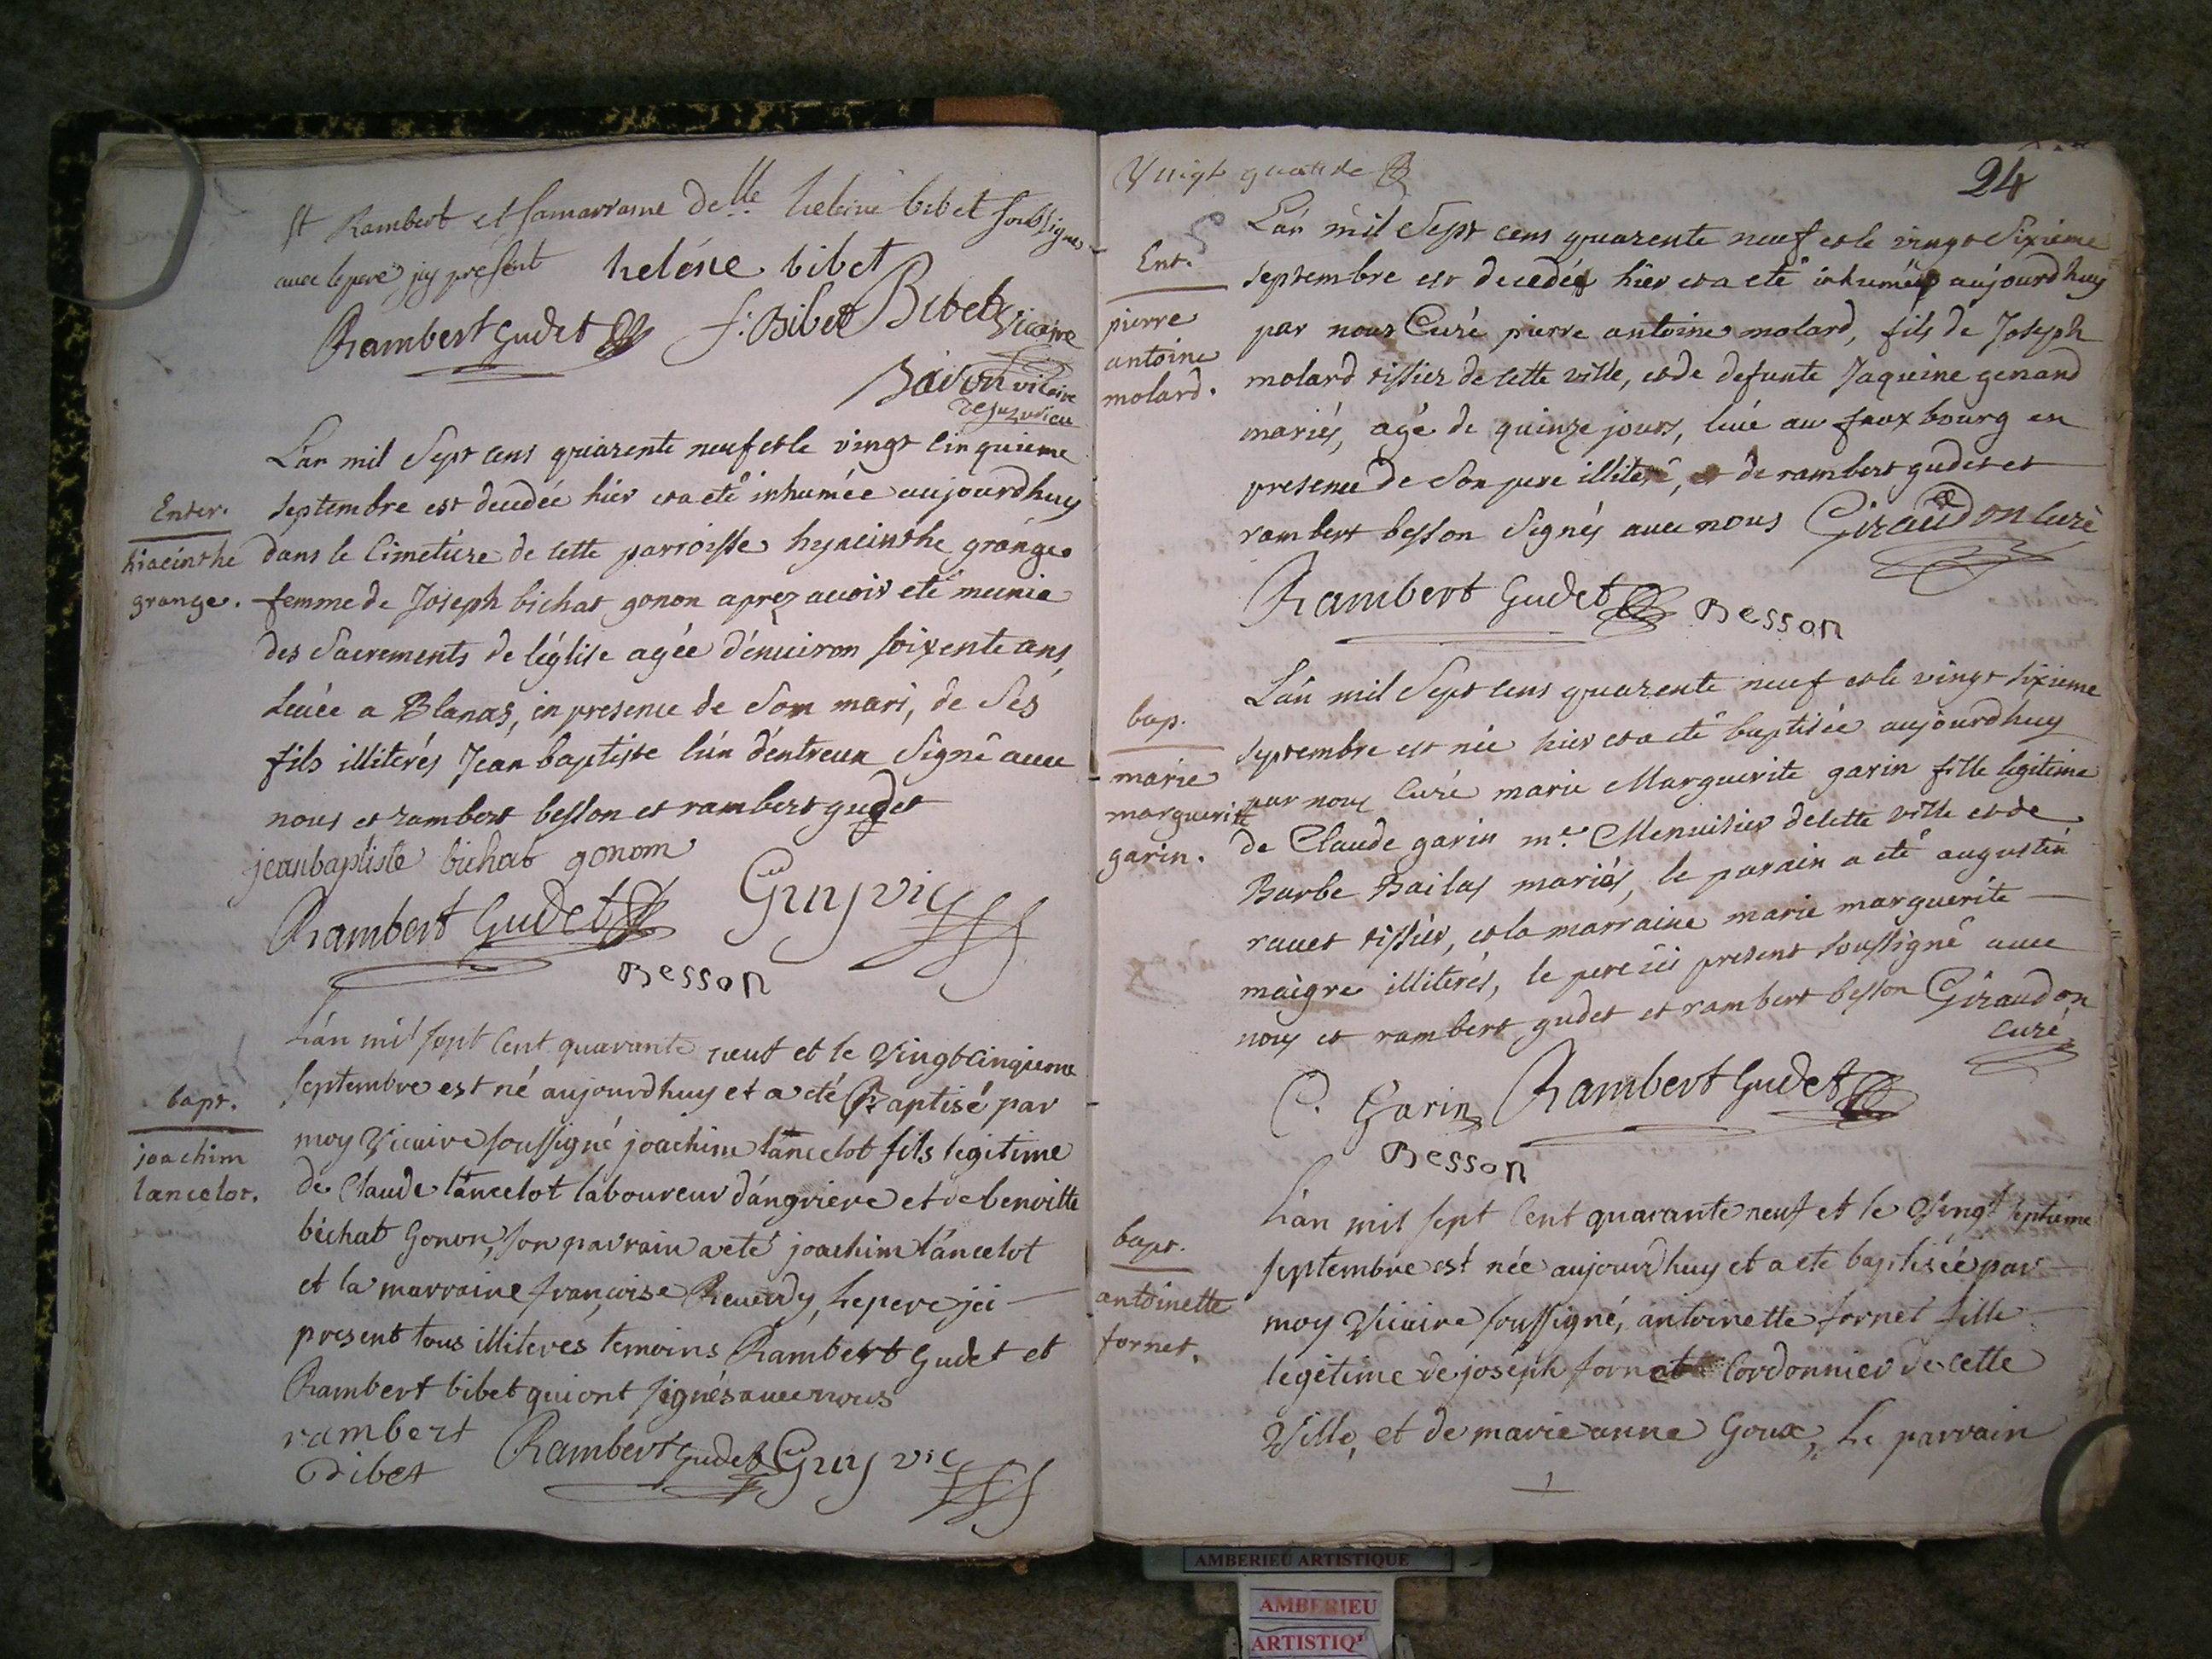 st Rambert et sa marraine delle heleine bibet soubsignes
avec le pere jcy present helésie bibet
Rambert Gudet f: Bibet Bibet Vicaire
vicaire
de
L'an mil Sept cens quarente neuf et le vingt cinquieme
Enter. septembre est decedée hier et a eté inhumée aujourdhuy
hiacinthe dans le cimetiere de cette parroisse hyacinthe grange
grange. femme de Joseph bichat gonon aprez avoir eté munie
des Sacrements de l'église agée d'environ soixente ans,
levée a Blanas, en presence de Son mari, de Ses
fils illiterés Jean baptiste l'un d'entreux Signé avec
nous et rambert besson et rambert gudet
jeanbaptiste bichat gonom
Rambert Gudet Guy vic
Besson
L'an mil sept cent quarante neuf et le Vingt cinquieme
septembre est né aujourdhuy et a eté Baptisé par
bapt. moy Vicaire soussigné joachim lancelot fils legitime
joachim de Claude lancelot laboureur d'angriere et de benoitte
lancelot. bichat Gonon, son parrain a eté joachim lancelot
et la marraine francoise Reverdy, le pere jci
present tous illiterés temoins Rambert Gudet et
Rambert bibet qui ont signés avec nous
rambert Rambert Gudet Guy vic
Bibet
Vingt quattre
24
Ent.
pierre
antoine
molard.
L'an mil Sept cens quarente neuf et le vingt Sixieme
septembre est decedé hier et a eté inhumé aujourdhuy
par nous Curé pierre antoine molard, fils de Joseph
molard tissier de cette ville, et de defunte Jaqueine genand
mariés, agé de quinze jours, levé au faux bourg en
presence de Son pere illiteré, et de rambert gudet et
rambert besson Signés avec nous Giraudon curé
Rambert Gudet Besson
bap.
marie
marguerite
garin.
L'an mil Sept cens quarente neuf et le vingt sixieme
septembre est née hier et a eté baptisée aujourdhuy
par nous Curé marie Marguerite garin fille legitime
de Claude garin me. Menuisier de cette ville et de
Barbe Bailas mariés, le parain a eté augustin
ravet tissier, et la marraine marie marguerite
maigre illiterés, le pere ici present soussigné avec
nous et rambert gudet et rambert besson Giraudon
curé
C. Garin Rambert Gudet
Besson
bapt.
antoinette
fornet.
L'an mil sept cent quarante neuf et le Vingt septieme
septembre est née aujourdhuy et a eté baptisée par
moy Vicaire soussigné, antoinette fornet fille
legitime de joseph fornet Cordonnier de cette
Ville, et de marie anne Goux, Le parrain
AMBERIEU ARTISTIQUE
AMBERIEU
ARTISTIQ